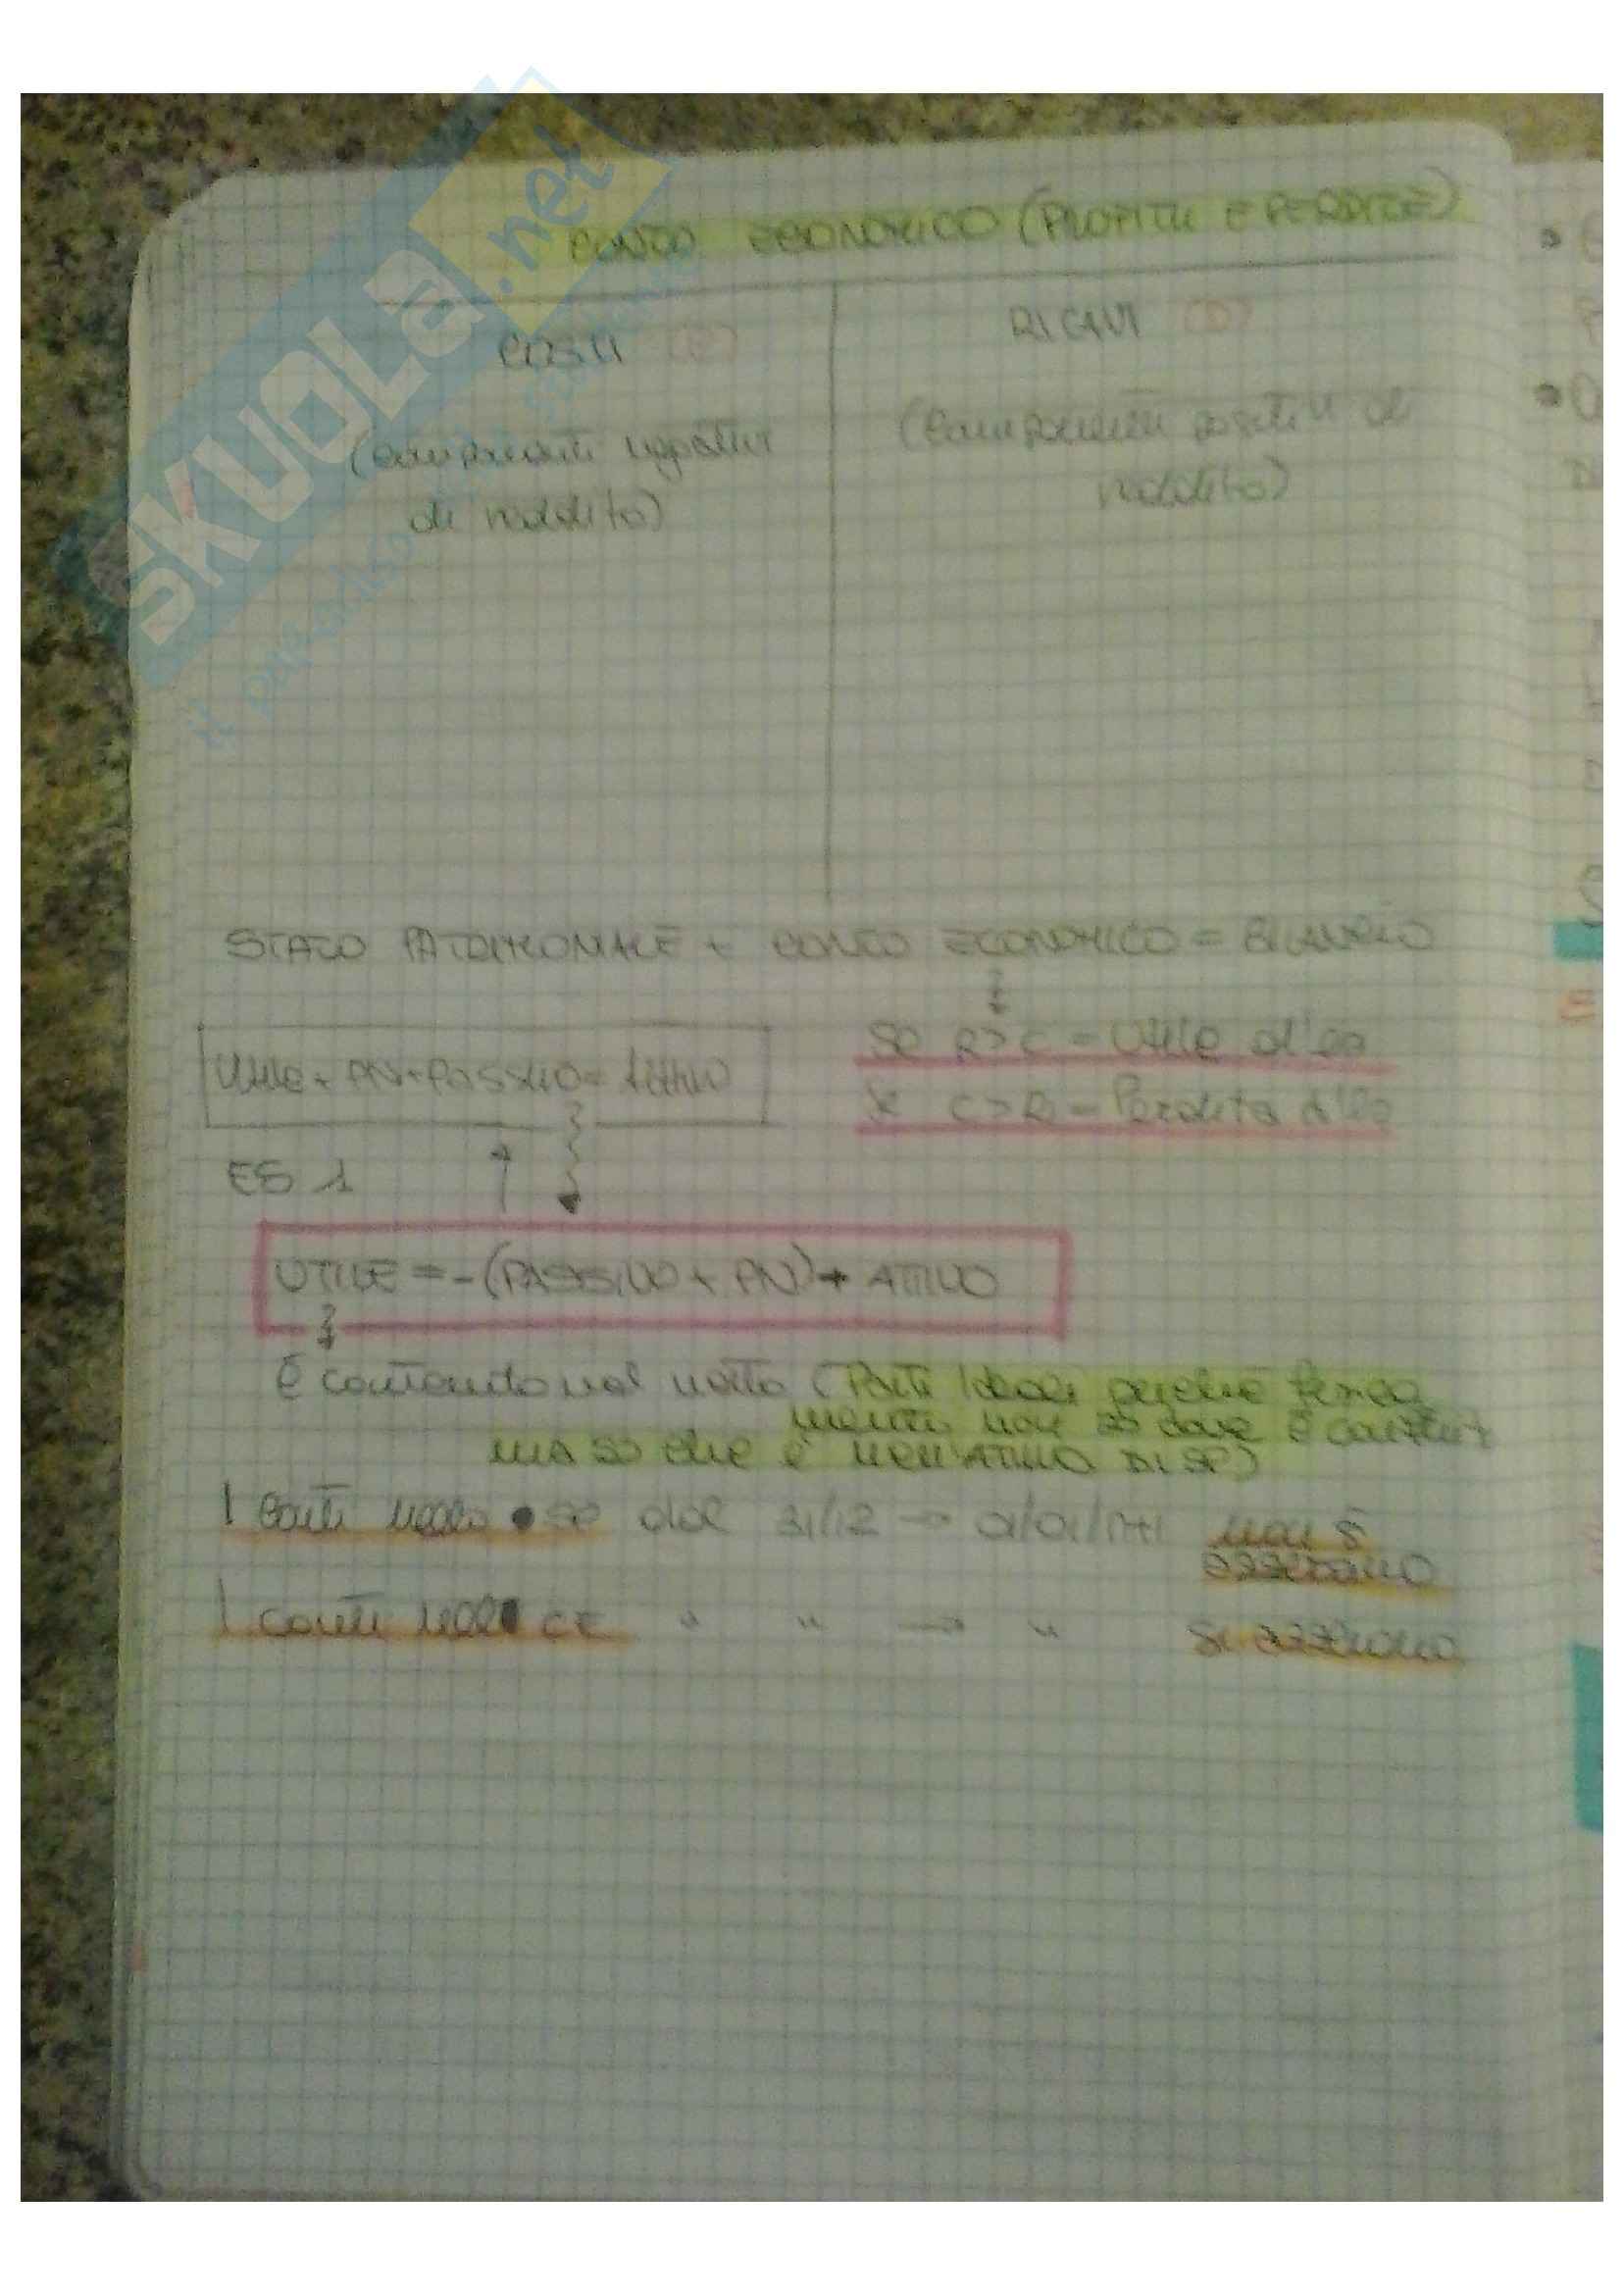 CONTO ECONOMICO (PROFITTI E PERDITE)
COSTI
RICAVI
(componenti negativi
di reddito)
(componenti positivi di
reddito)
STATO PATRIMONIALE + CONTO ECONOMICO = BILANCIO
Utile + PN + Passivo = Attivo
Se R > C = Utile d'es
Se C > R = Perdita d'es
ES 1
UTILE = - (PASSIVO + PN) + ATTIVO
È contenuto nel netto (Parti Ideali perché fisica
mente non so dove è
ma so che è nell'ATTIVO DI SP)
I conti nello SP dal 31/12 → 01/01/n+1 non s
azzerano
I conti nel CE " " → " si azzerano
SKUOLA.net
il paradiso